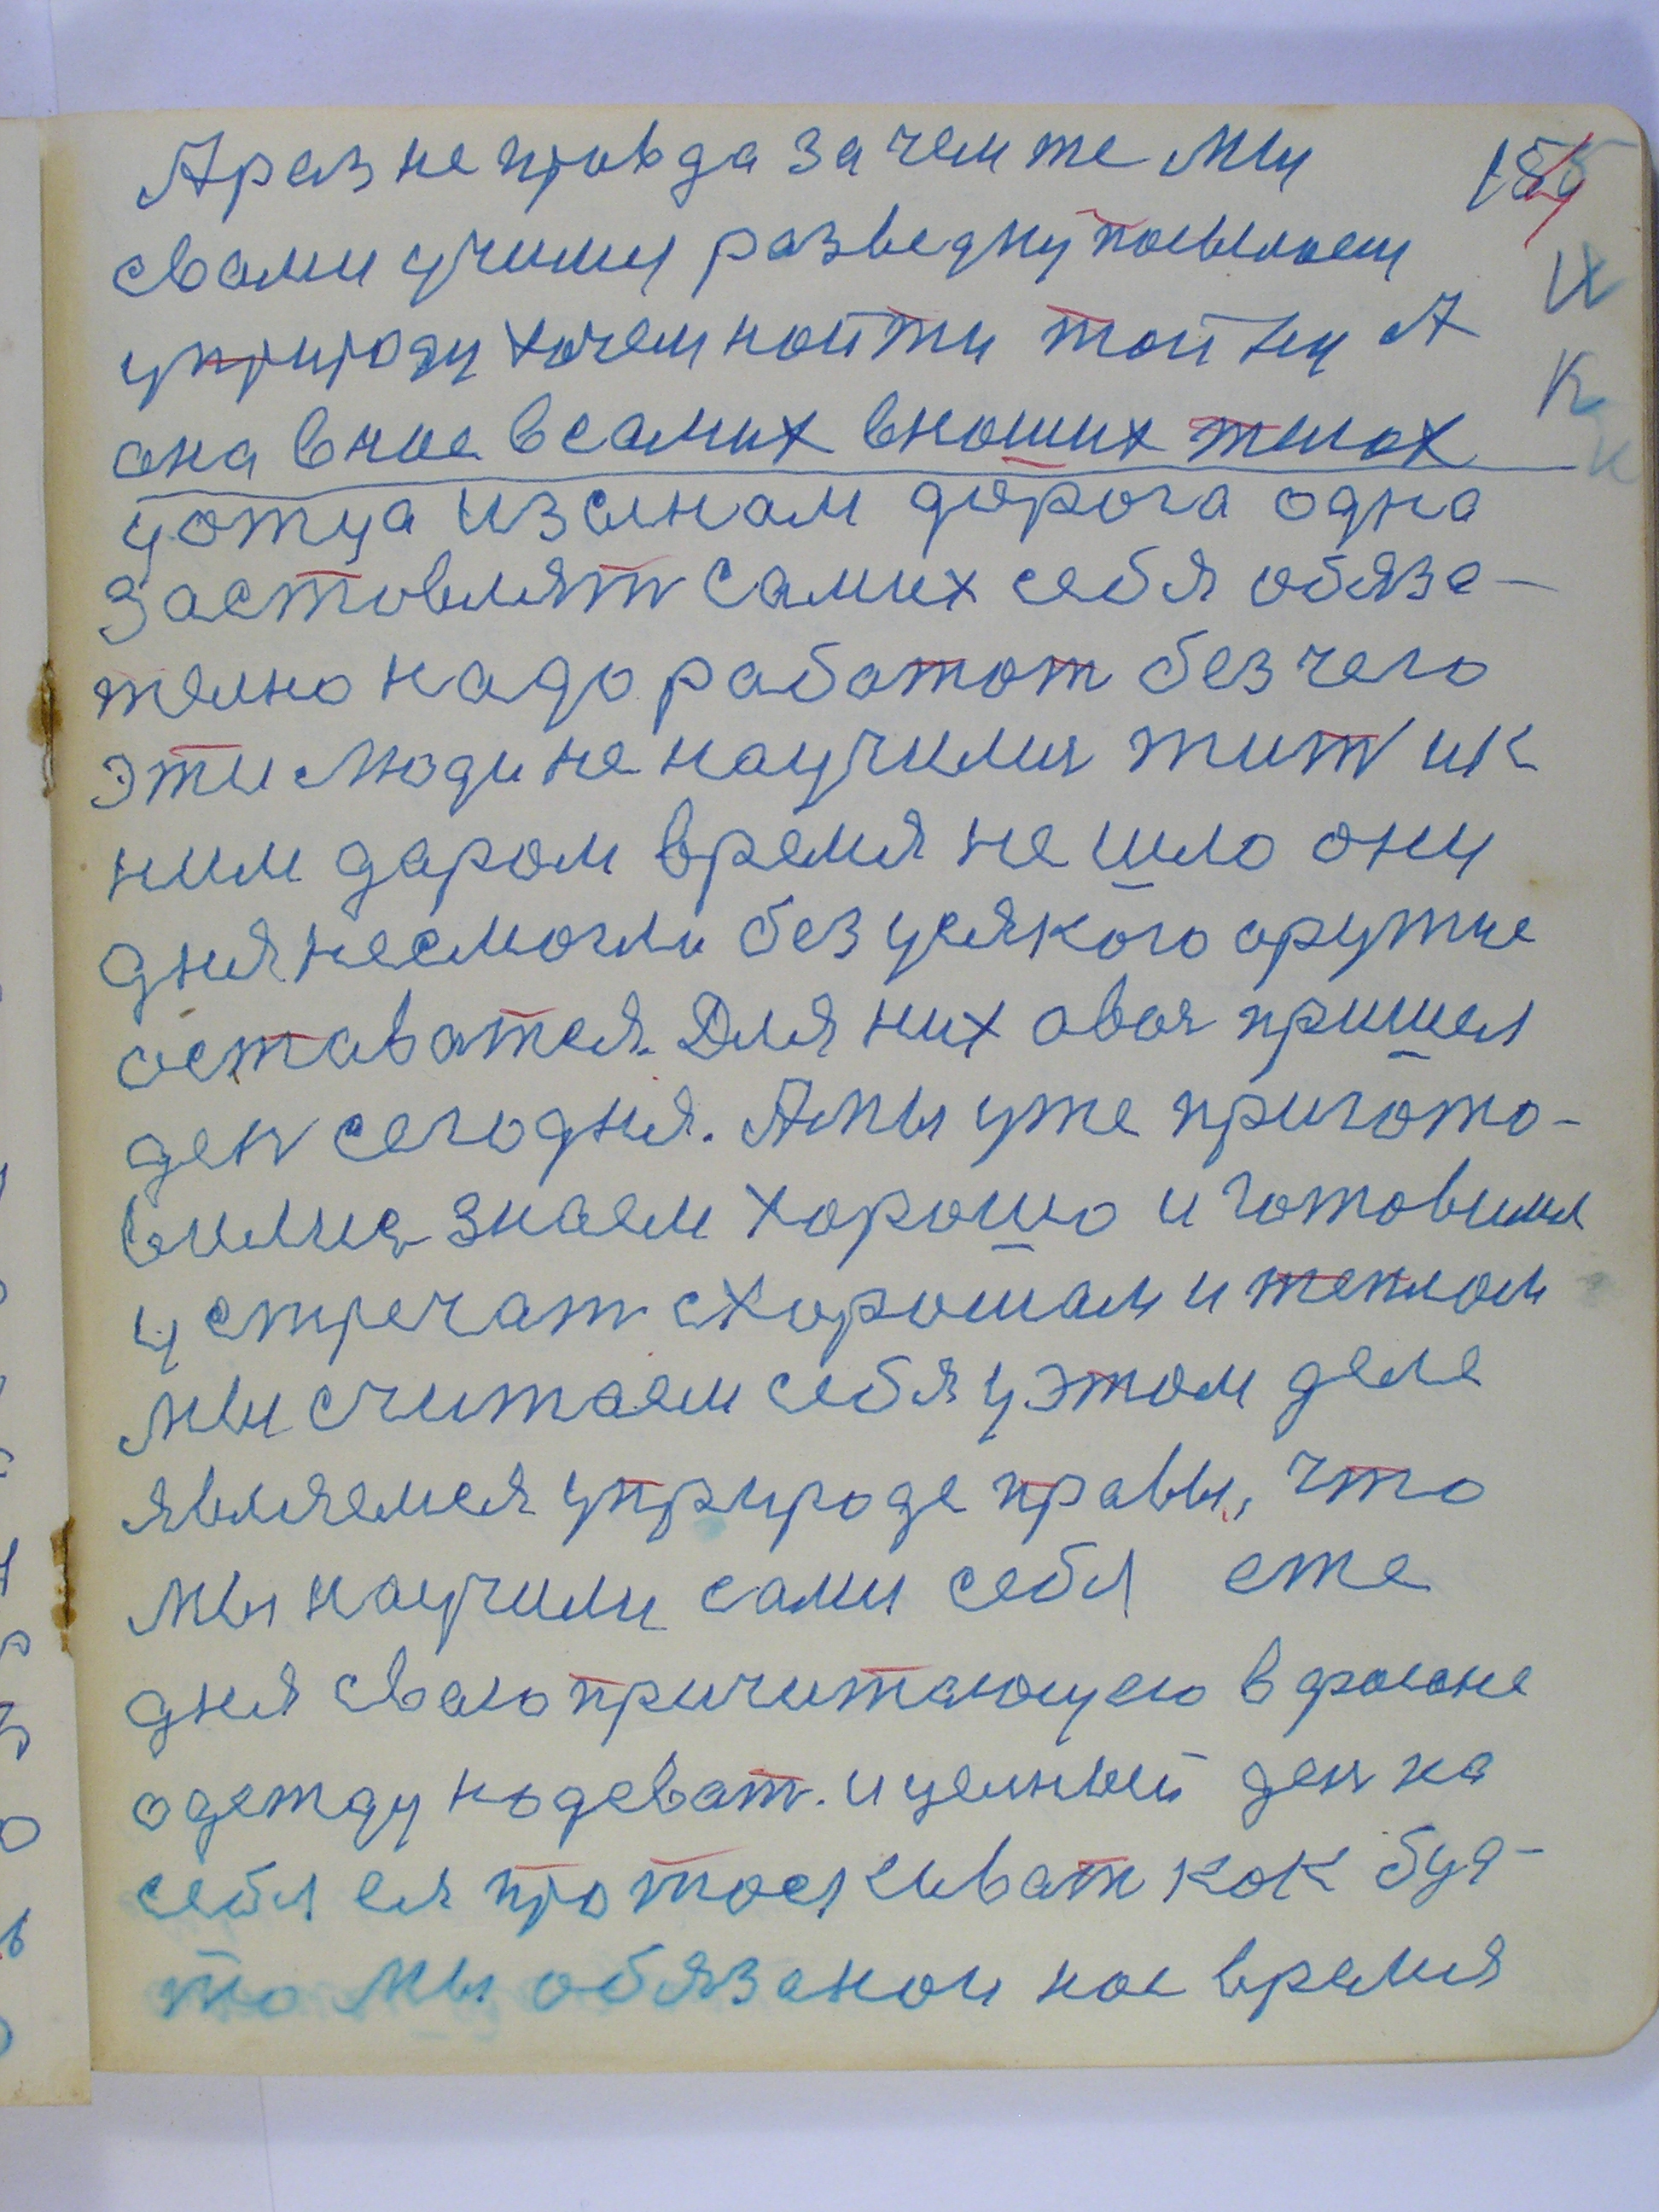 А раз не правда зачем же мы
свами учимы разведку посылаем
у природу хочем найти тайну А
она в нас в самих в наших телах
у отца и з сынам дорога одна
Заставлят самих себя обяза-
телно надо работат без чего
эти люди не научимы жит и к
ним даром время не шло они
дня не смогли без усякого оружие
оставатся. Для них авоя пришел
ден сегодня. А мы уже пригото-
вилис знаем хорошо и готовимы
устречат с хорошам и теплом
мы считаем себя у этом деле
являемся у природе правы, что
мы научили сами себя еже
дня сваю причитающуею в фасоне
одежду надеват. и целный ден на
себя ея протаскиват как буд-
то мы обязанои нае время